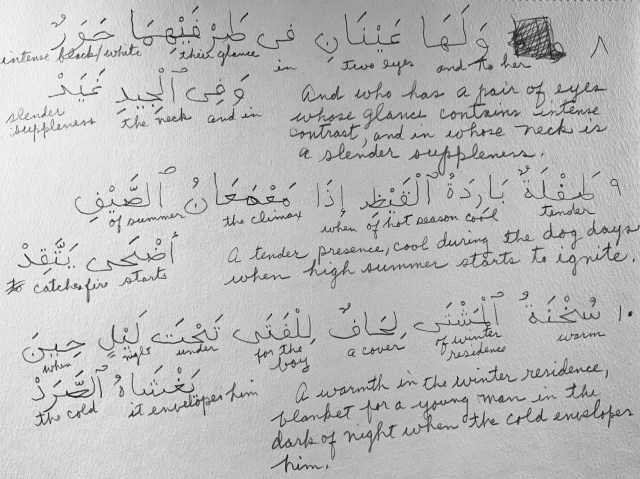 ٨ وَلَهَا عَيْنَانِ فى طَرْفَيْهِمَا حَوَرٌ
intense black/white their glance in two eyes and to her
وَفِى ٱلْجِيدِ غَيَدْ
slender suppleness the neck and in
And who has a pair of eyes
whose glance contains intense
contrast, and in whose neck is
a slender suppleness.
٩ طَفْلَةٌ بَارِدَةُ ٱلْقَيْظِ إِذَا مَعْمَعَانُ ٱلصَّيْفِ
of summer the climax when of hot season cool tender
أَضْحَى يَتَّقِدْ
catches fire starts
A tender presence, cool during the dog days
when high summer starts to ignite.
١٠ سُخْنَةُ ٱلْمَشْتَى لِحَافٌ لِلْفَتَى تَحْتَ لَيْلٍ حِينَ
when night under for the boy a cover of winter residence warm
يَغْشَاهُ ٱلصَّرَدْ
the cold it envelopes him
A warmth in the winter residence,
blanket for a young man in the
dark of night when the cold envelopes
him.